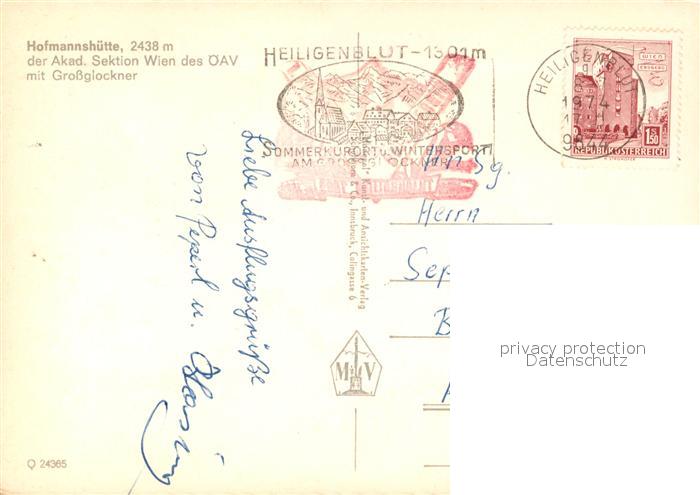 Hofmannshütte, 2438 m
der Akad. Sektion Wien des ÖAV
mit Großglockner
HEILIGENBLUT-1301m
SOMMERKURORT u. WINTERSPORT
AM GROSSGLOCKNER
HEILIGENBLUT
1974
9844
WIEN
ERDBERG
1.50
REPUBLIK ÖSTERREICH
Liebe Ausflugsgrüße
von Peperl u.
Sg.
Herrn
Sep
B
Kunst- und Ansichtskarten-Verlag
& Co., Innsbruck, Colingasse 6
M V
Q 24365
privacy protection
Datenschutz